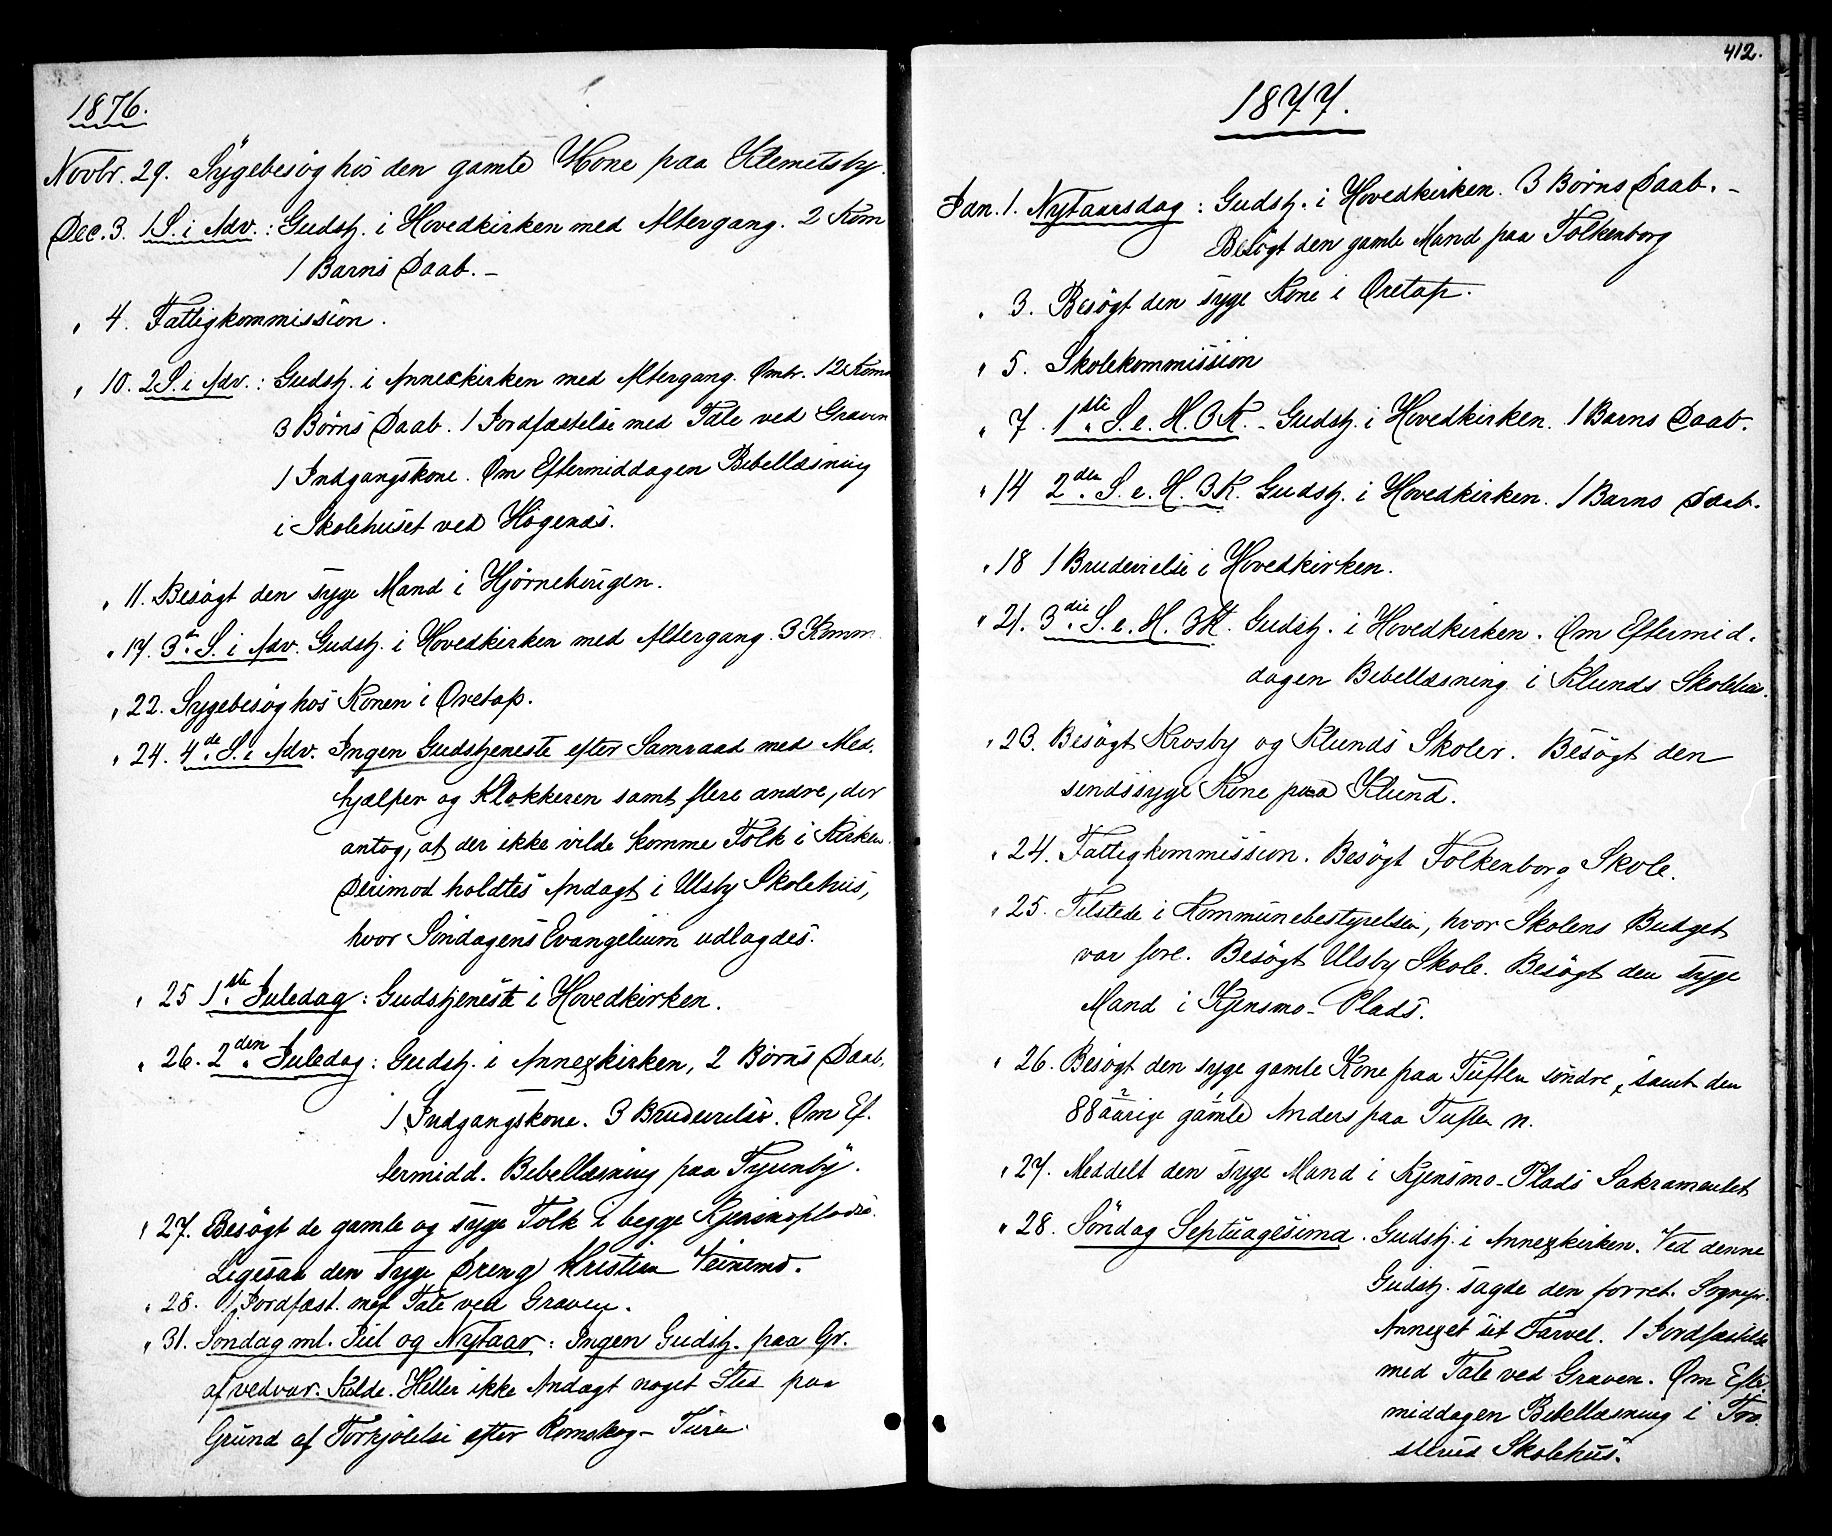 1876.
Novbr. 29. Sygebesøg hos den gamle Kone paa Klemetsby.
Dec. 3. 1 S. i Adv.: Gudstj. i Hovedkirken med Altergang. 2 Kom
1 Barns Daab. –
" 4. Fattigkommission.
" 10. 2 S. i Adv.: Gudstj. i Annexkirken med Altergang. Omtr. 12 Komm
3 Børns Daab. 1 Jordfæstelse med Tale ved Graven
1 Indgangskone. Om Eftermiddagen Bibellæsning
i Skolehuset ved Høgenæs.
" 11. Besøgt den syge Mand i Hjørnehaugen.
" 17. 3die S. i Adv. Gudstj. i Hovedkirken med Altergang. 3 Komm
" 22. Sygebesøg hos Konen i Øretap.
" 24. 4de S. i Adv. Ingen Gudstjeneste efter Samraad med Med.
hjælper og Klokkeren samt flere andre, der
antog, at der ikke vilde komme Folk i Kirken.
Derimod holdtes Andagt i Ulsby Skolehus,
hvor Søndagens Evangelium udlagdes.
" 25 1ste Juledag: Gudstjeneste i Hovedkirken.
" 26. 2den Juledag: Gudstj. i Annexkirken, 2 Børns Daab,
1 Indgangskone. 3 Brudevielser. Om Ef.
termidd. Bibellæsning paa
" 27. Besøgt de gamle og syge Folk i begge Kjensmoplads.
Ligesaa den syge Dreng Kristian
" 28. 1 Jordfæst. med Tale ved Graven.
" 31. Søndag ml. Jul og Nytaar: Ingen Gudstj. paa Gr.
af vedvar. Kulde. Heller ikke Andagt noget Sted paa
Grund af Forkjølelse efter Romskog-Turen.
412.
1877.
Jan. 1. Nytaarsdag: Gudstj. i Hovedkirken. 3 Børns Daab. –
Besøgt den gamle Mand paa Folkenborg
" 3. Besøgt den syge Kone i Øretap.
" 5. Skolekommission
" 7. 1ste S. e. H. 3 K. – Gudstj. i Hovedkirken. 1 Barns Daab.
" 14 2den S. e. H. 3 K. Gudstj. i Hovedkirken. 1 Barns Daab.
" 18 1 Brudevielse i Hovedkirken.
" 21. 3die S. e. H. 3 K. Gudstj. i Hovedkirken. Om Eftermid.
dagen Bibellæsning i Klunds Skolehus.
" 23. Besøgt Krosby og Klunds Skoler. Besøgt den
sindssyge Kone paa Klund.
" 24. Fattigkommission. Besøgt Folkenborg Skole.
" 25. Tilstede i Kommunebestyrelsen, hvor Skolens Budget
var fore. Besøgt Ulsby Skole. Besøgt den syge
Mand i Kjensmo-Plads.
" 26. Besøgt den syge gamle Kone paa Tuften søndre, samt den
88 aarige gamle Anders paa Tuften n.
" 27. Meddelt den syge Mand i Kjensmo-Plads Sakramentet
" 28. Søndag Septuagesima. Gudstj. i Annexkirken. Ved denne
Gudstj. sagde den forret. Sognepr.
Annexet sit Farvel. 1 Jordfæstelse
med Tale ved Graven. Om Efter
middagen Bibellæsning i Fos
sterud Skolehus.